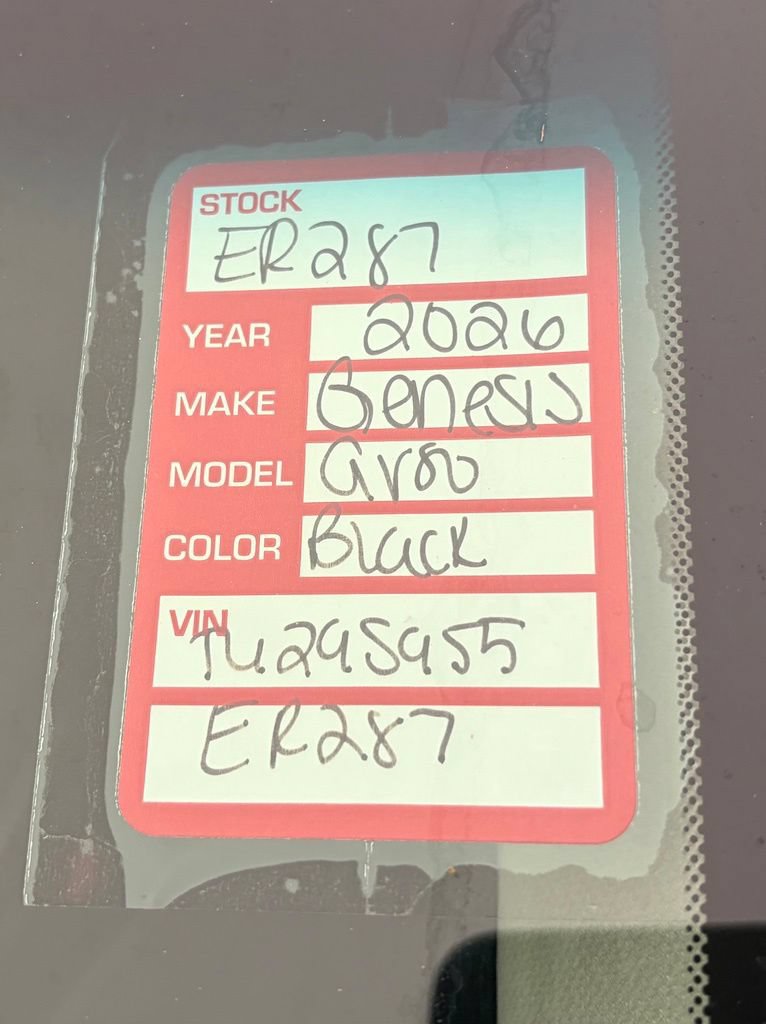 STOCK
ER287
YEAR 2026
MAKE Genesis
MODEL GV80
COLOR Black
VIN
TU295955
ER287